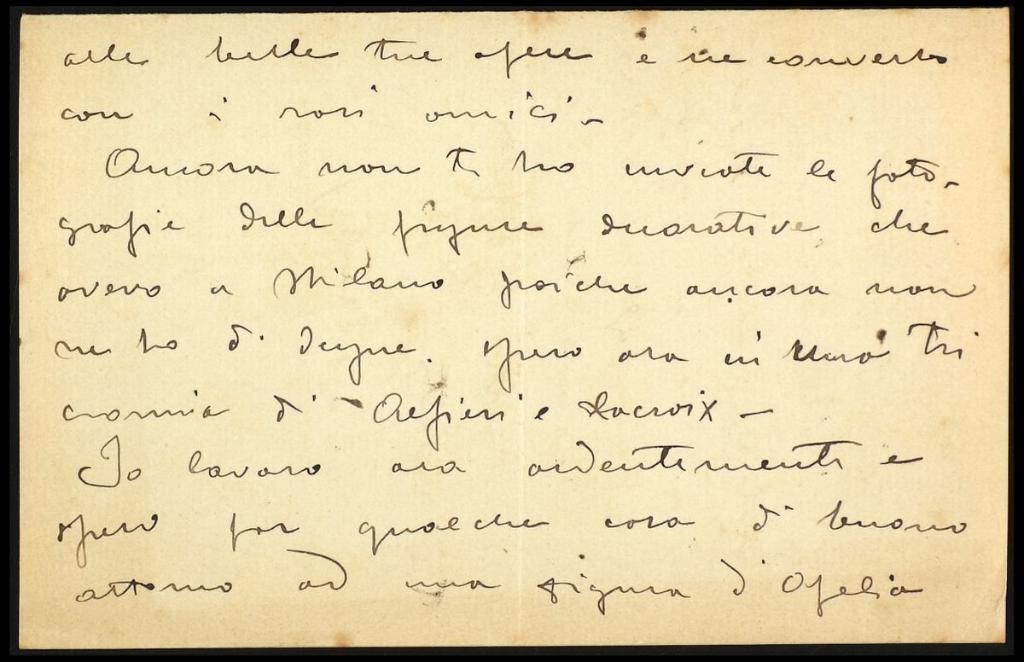 alle belle tue opere e ne converso
con i rari amici -
Ancora non ti ho inviate le foto-
grafie delle figure decorative che
avevo a Milano poiche ancora non
ne ho di degne. spero ora in una tri
cromia di Alfieri e Lacroix -
Io lavoro ora ardentemente e
spero far qualche cosa di buono
attorno ad una figura d'Ofelia